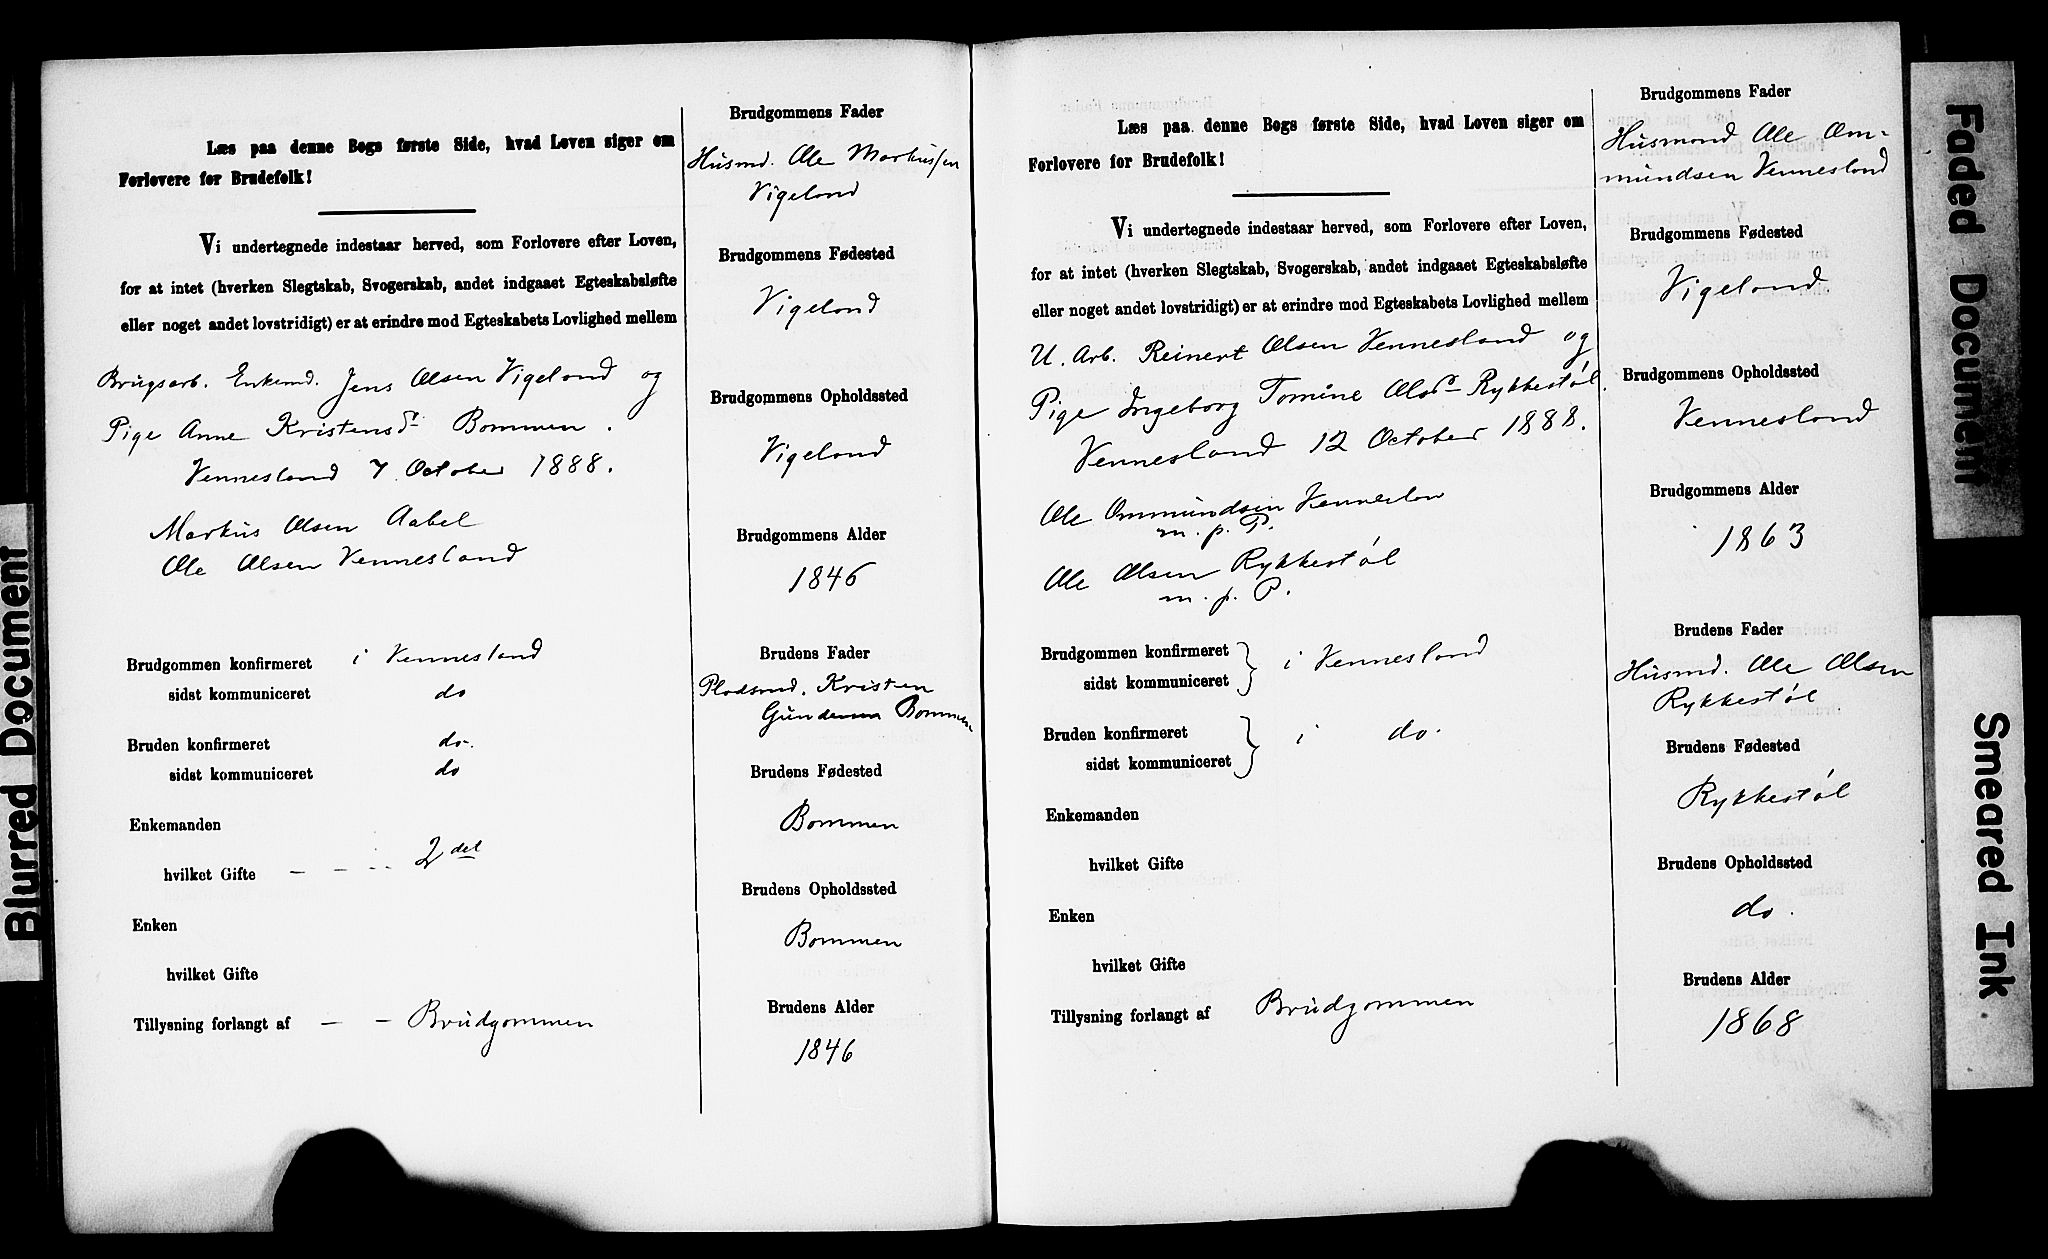 Læs paa denne Bogs første Side, hvad Loven siger om
Forlovere for Brudefolk!
Vi undertegnede indestaar herved, som Forlovere efter Loven,
for at intet (hverken Slegtskab, Svogerskab, andet indgaaet Egteskabsløfte
eller noget andet lovstridigt) er at erindre mod Egteskabets Lovlighed mellem
Brugsarb. Enkemd. Jens Olsen Vigeland og
Pige Anne Kristensdr Bommen.
Vennesland 7. October 1888.
Markus Olsen Aabel
Ole Olsen Vennesland
Brudgommen konfirmeret i Vennesland
sidst kommuniceret do
Bruden konfirmeret do.
sidst kommuniceret do
Enkemanden
hvilket Gifte - - - 2det
Enken
hvilket Gifte
Tillysning forlangt af - - Brudgommen
Brudgommens Fader
Husmd. Ole Markussen
Vigeland
Brudgommens Fødested
Vigeland
Brudgommens Opholdssted
Vigeland
Brudgommens Alder
1846
Brudens Fader
Pladsmd. Kristen
Gundersen Bommen
Brudens Fødested
Bommen
Brudens Opholdssted
Bommen
Brudens Alder
1846
Læs paa denne Bogs første Side, hvad Loven siger om
Forlovere for Brudefolk!
Vi undertegnede indestaar herved, som Forlovere efter Loven,
for at intet (hverken Slegtskab, Svogerskab, andet indgaaet Egteskabsløfte
eller noget andet lovstridigt) er at erindre mod Egteskabets Lovlighed mellem
U. Arb. Reinert Olsen Vennesland og
Pige Ingeborg Tomine Olsdr Rykkestøl.
Vennesland 12 October 1888.
Ole Ommundsen Venneslan
m. p. P.
Ole Olsen Rykkestøl
m. p. P.
Brudgommen konfirmeret
sidst kommuniceret } i Vennesland
Bruden konfirmeret
sidst kommuniceret } i do.
Enkemanden
hvilket Gifte
Enken
hvilket Gifte
Tillysning forlangt af Brudgommen
Brudgommens Fader
Husmand Ole Om-
mundsen Vennesland
Brudgommens Fødested
Vigeland
Brudgommens Opholdssted
Vennesland
Brudgommens Alder
1863
Brudens Fader
Husmd. Ole Olsen
Rykkestøl
Brudens Fødested
Rykkestøl
Brudens Opholdssted
do.
Brudens Alder
1868
Blurred Document
Faded Document
Smeared Ink